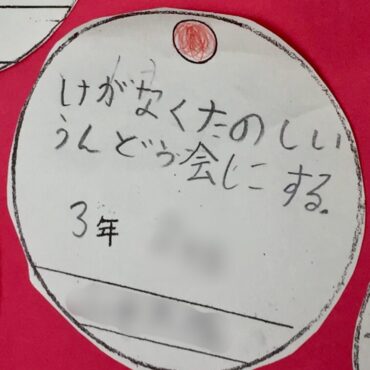 けがなくたのしい
うんどう会にする。
3年